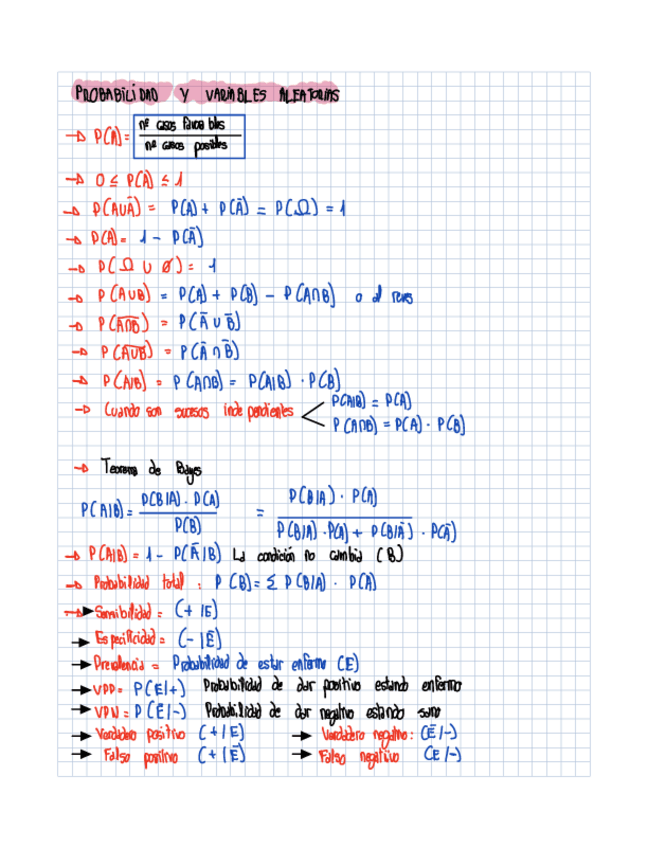 PROBABILIDAD Y VARIABLES ALEATORIAS
→ P(A) = nº casos favorables / nº casos posibles
→ 0 ≤ P(A) ≤ 1
→ P(A∪Ā) = P(A) + P(Ā) = P(Ω) = 1
→ P(A) = 1 - P(Ā)
→ P(Ω ∪ ∅) = 1
→ P(A∪B) = P(A) + P(B) - P(A∩B) o al reves
→ P(A̅∩̅B̅) = P(Ā ∪ B̄)
→ P(A̅∪̅B̅) = P(Ā ∩ B̄)
→ P(A|B) = P(A∩B) = P(A|B) · P(B)
→ Cuando son sucesos independientes < P(A|B) = P(A)
P(A∩B) = P(A) · P(B)
→ Teorema de Bayes
P(A|B) = P(B|A) · P(A) / P(B) = P(B|A) · P(A) / P(B|A) · P(A) + P(B|Ā) · P(Ā)
→ P(A|B) = 1 - P(Ā|B) La condición no cambia (B)
→ Probabilidad total : P(B) = Σ P(B|A) · P(A)
→ Sensibilidad = (+|E)
→ Especificidad = (-|Ē)
→ Prevalencia = Probabilidad de estar enfermo (E)
→ VPP = P(E|+) Probabilidad de dar positivo estando enfermo
→ VPN = P(Ē|-) Probabilidad de dar negativo estando sano
→ Verdadero positivo (+|E) → Verdadero negativo: (Ē|-)
→ Falso positivo (+|Ē) → Falso negativo (E|-)